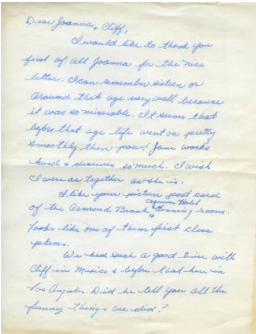 Dear Joanna & Cliff,
I would like to thank you
first of all Joanna for the nice
letter. I can remember sixteen or
around that age very well because
it was so miserable. It seems that
before that age life went on pretty
smoothly then pow! Jane works
hard & deserves so much. I wish
I were as together as she is.
I like your picture post card
of the Armond Brook, Hotel
dinning room.
Looks like one of them first class
places.
We had such a good time with
Cliff in Mexico & before that here in
Los Angeles. Did he tell you all the
funny things we did?